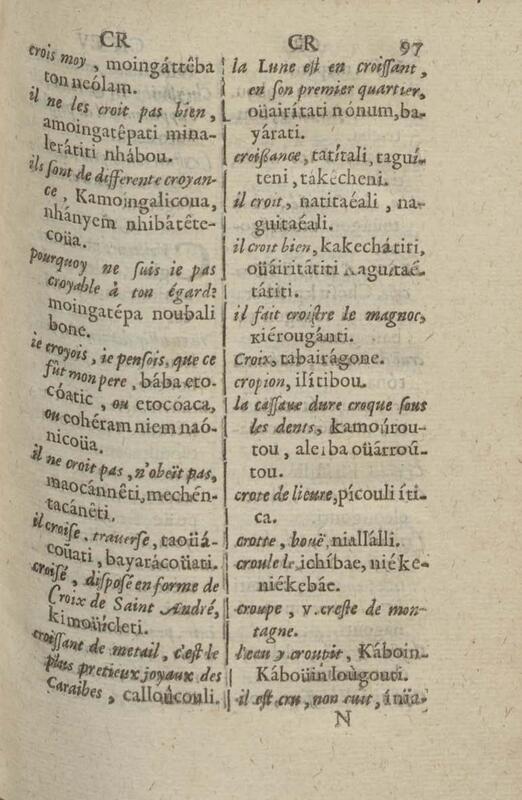 CR
crois moy, moingáttêba
ton neólam.
il ne les croit pas bien,
amoingatêpati mina-
lerátiti nhábou.
ils sont de differente croyan-
ce, Kamoingalicoua,
nhányem nhibátête-
coüa.
pourquoy ne suis ie pas
croyable à ton égard?
moingatépa noubali
bone.
ie croyois, ie pensois, que ce
fût mon pere, bába eto-
cóatic, ou etocoaca,
ou cohéram niem naó-
nicoüa.
il ne croit pas, n'obeït pas,
maocánnêti, mechén-
tacánêti.
il croise, trauerse, taoüá-
coüati, bayarácoüati.
croisé, disposé en forme de
Croix de Saint André,
kimoüícleti.
croissant de metail, c'est le
plus pretieux joyaux des
Caraibes, calloúcouli.
CR 97
la Lune est en croissant,
en son premier quartier,
oüairítati nónum, ba-
yárati.
croissance, tatítali, taguí-
teni, takécheni.
il croit, natitaéali, na-
guitaéali.
il croit bien, kakechátiti,
oüáiritátiti kagustaé-
tátiti.
il fait croistre le magnoc,
kiérougánti.
Croix, tabairágone.
cropion, ilítibou.
la cassaue dure croque sous
les dents, kamoúrou-
tou, aleiba oüárroû-
tou.
crote de lieure, pícouli íti-
ca.
crotte, bouë, niallálli.
croule le, ichíbae, niéke-
niékebáe.
croupe, v. creste de mon-
tagne.
l'eau y croupit, Káboin-
Káboüin loùgouti.
il est cru, non cuit, ínüa-
N